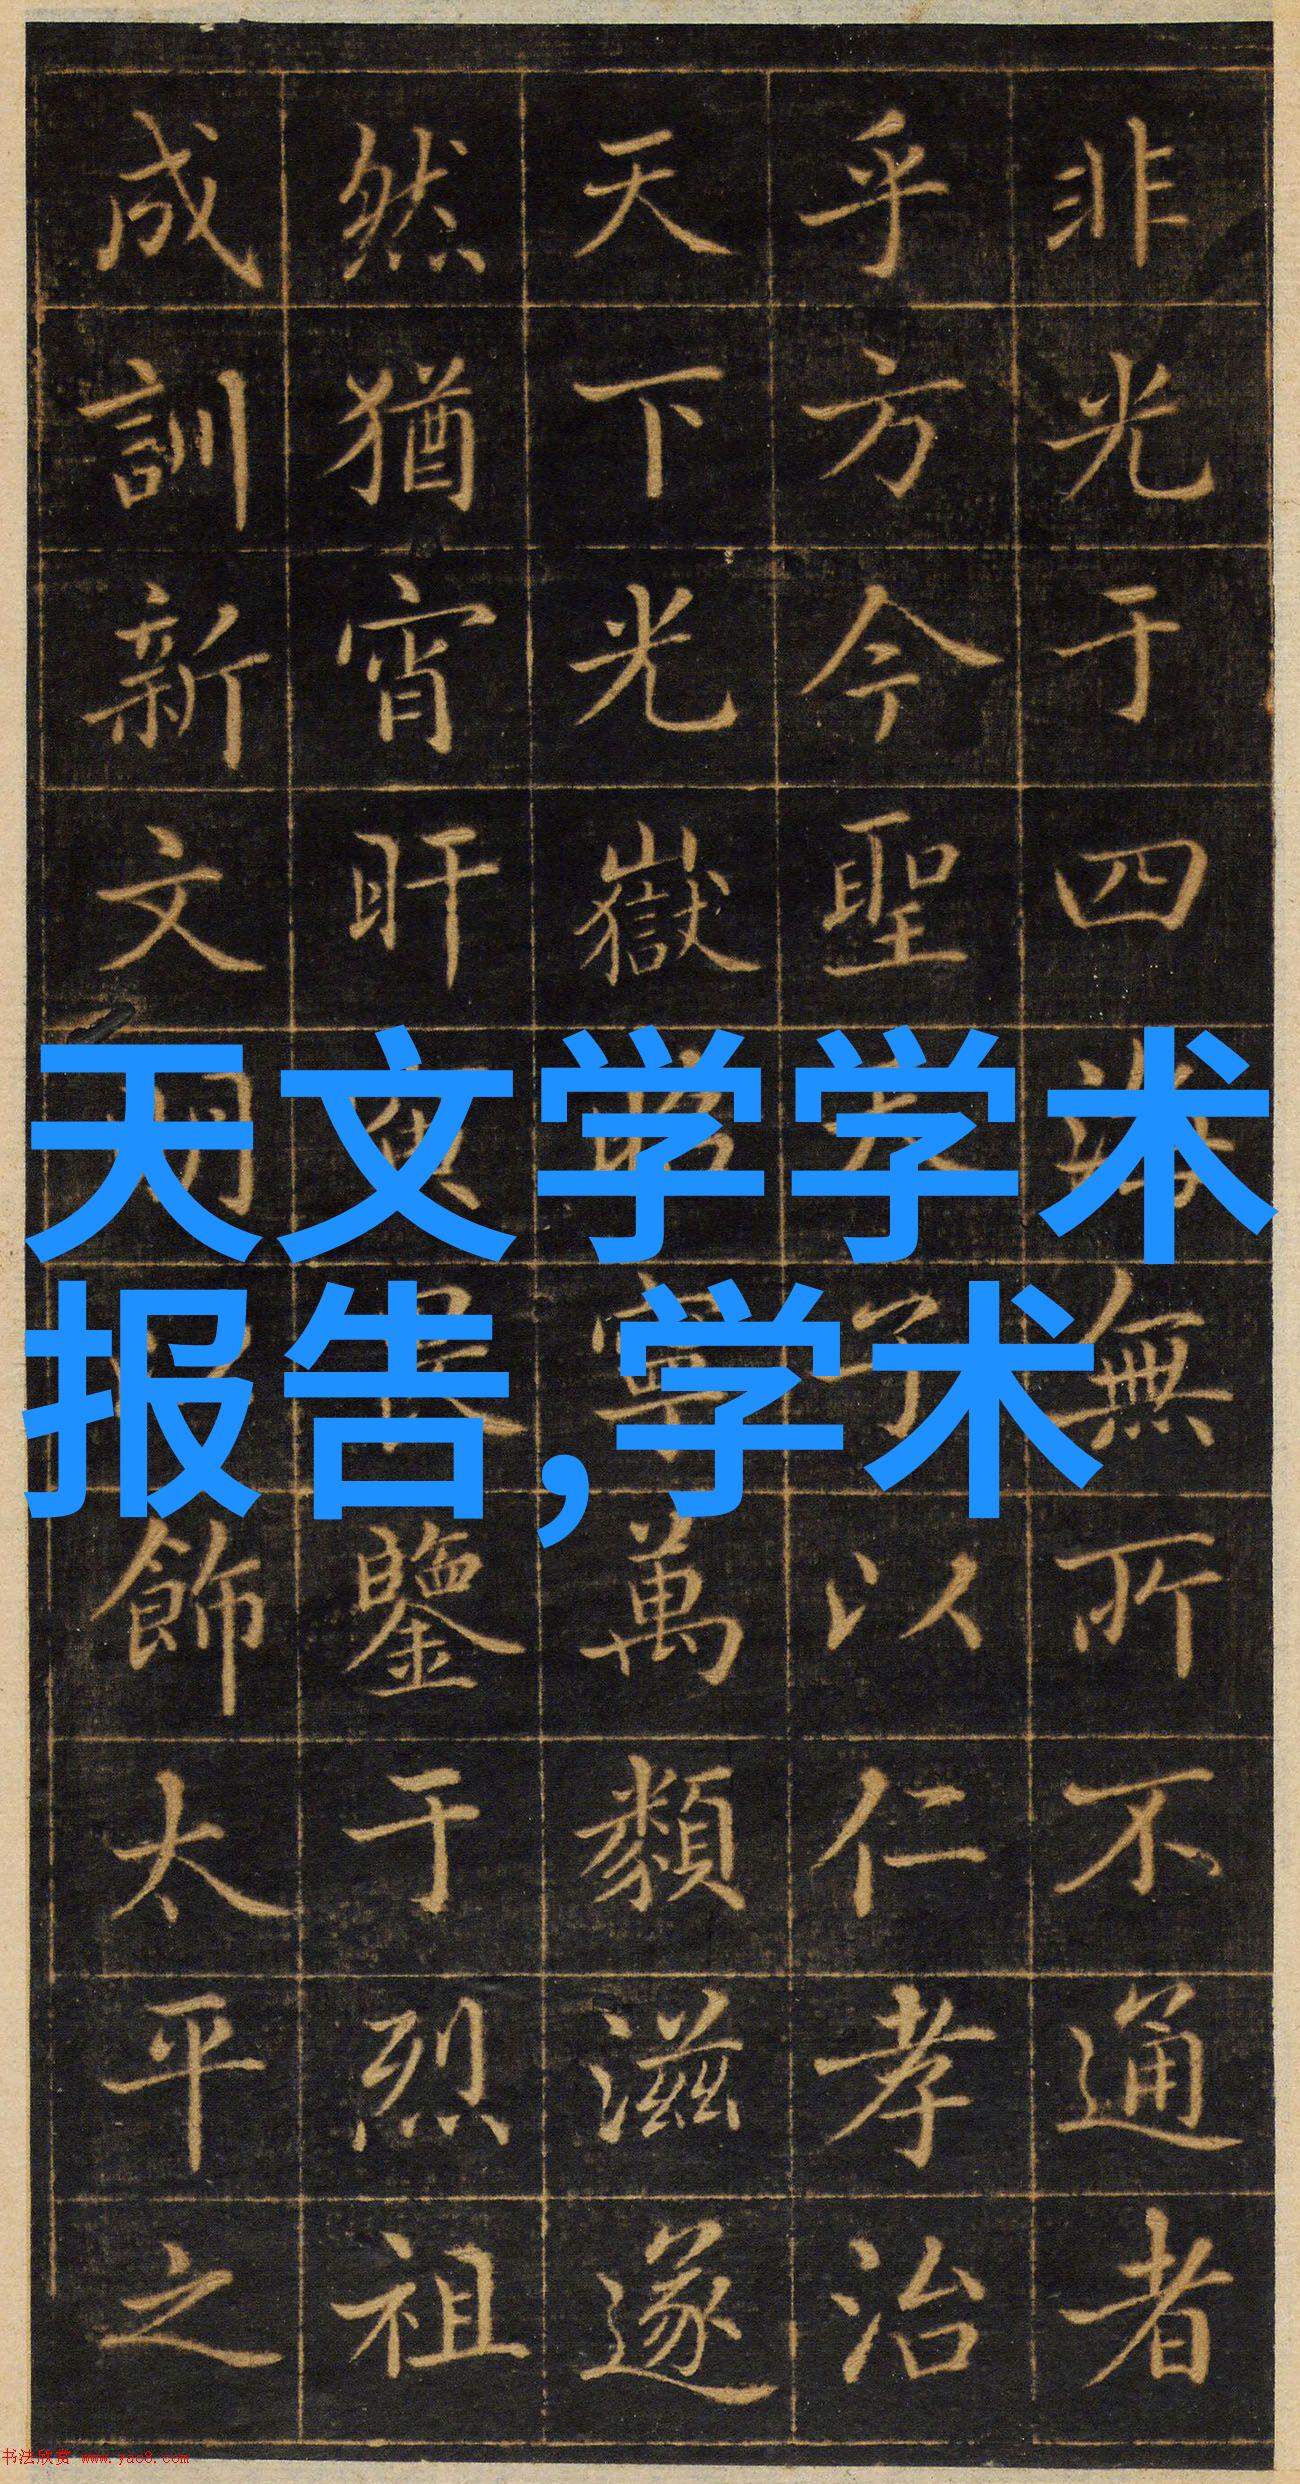 非光于四海無所不通者
乎方今聖天子以仁孝治
天下光嶽昭寧萬類滋遂
然猶宵旰鑒于烈祖
成訓新文明飾太平之
天文学学术
报告,学术
书法欣赏 www.yac8.com